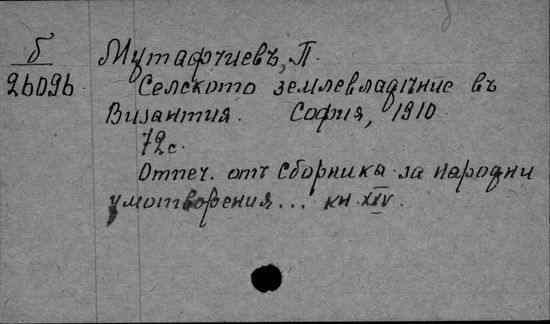 б
26096
Мутафчиевъ, П.
Селското землевладѣние въ
Византия. София, 1910
72 с.
Отпеч. отъ Сборника за народни
умотворения... кн. XXV.